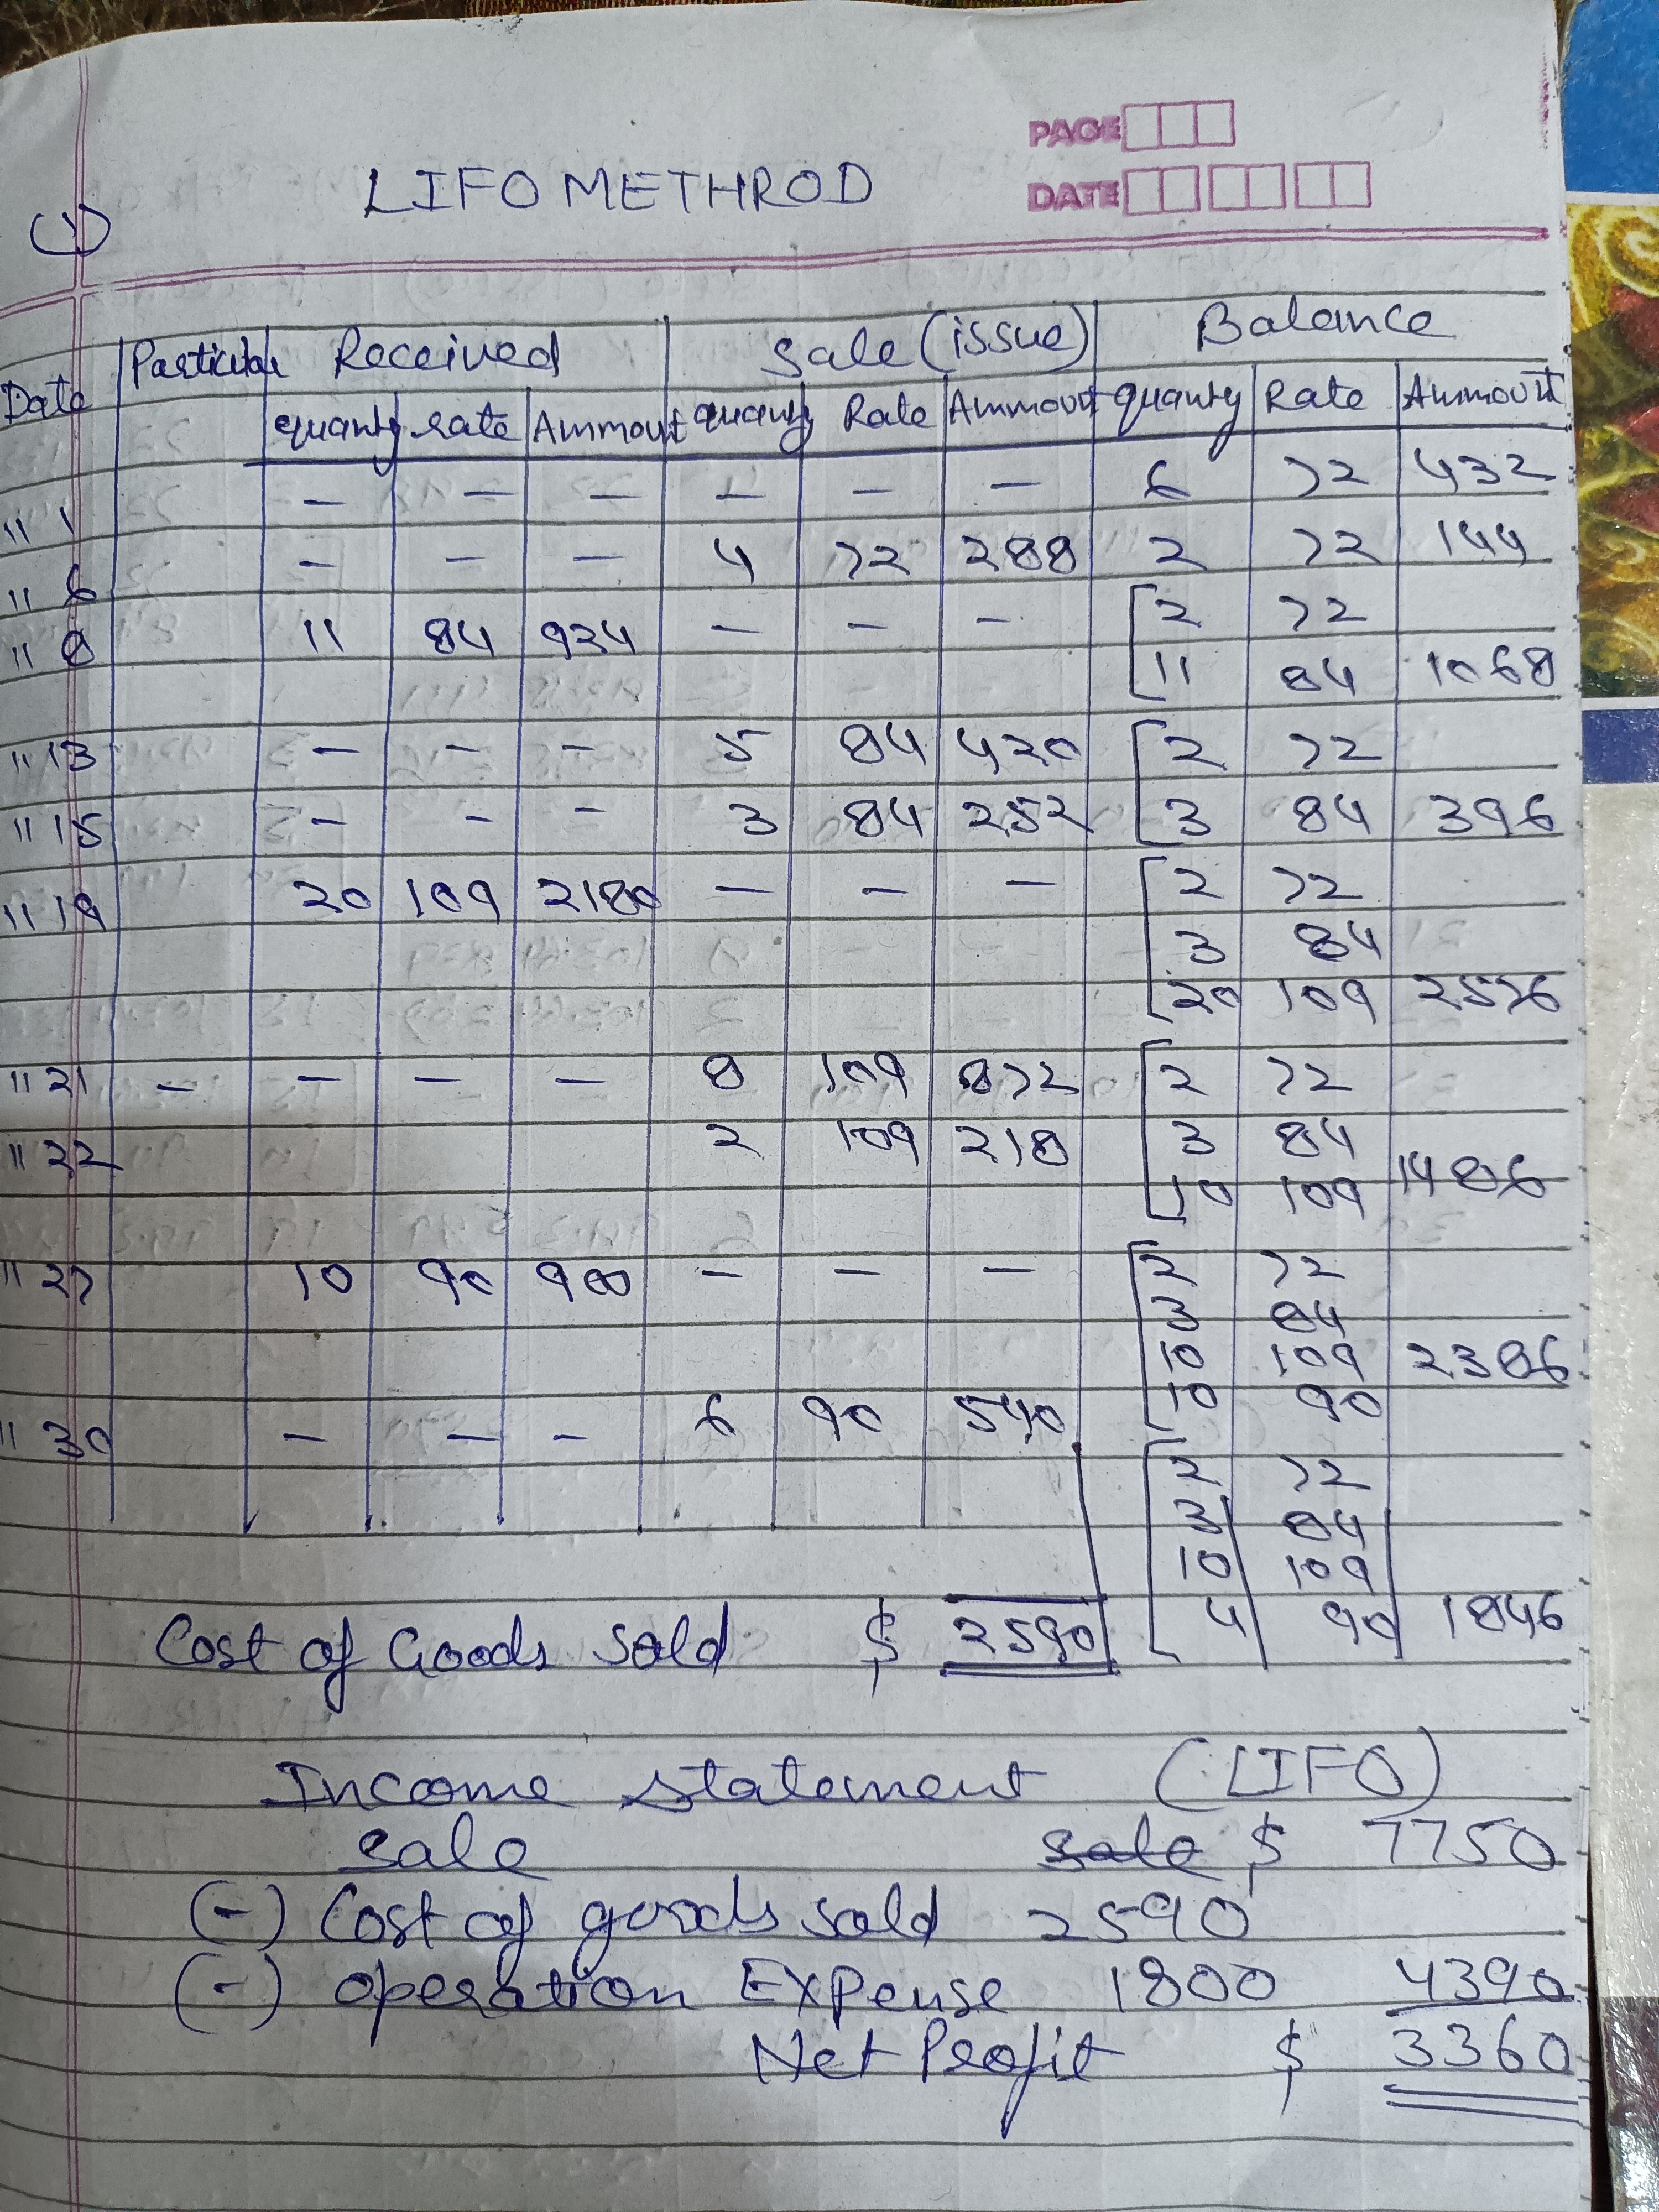 PAGE
LIFO METHROD
DATE
(1)
Date Particular Received Sale (issue) Balance
quanty rate Ammount quanty Rate Ammount quanty Rate Ammount
" 1 — — — — — — 6 72 432
" 6 — — — 4 72 288 2 72 144
" 8 11 84 924 — — — 2 72
11 84 1068
" 13 — — — 5 84 420 2 72
" 15 — — — 3 84 252 3 84 396
" 19 20 109 2180 — — — 2 72
3 84
20 109 2576
" 21 — — — — 8 109 872 2 72
" 22 2 109 218 3 84
10 109 1486
" 27 10 90 900 — — — 2 72
3 84
10 109 2386
10 90
" 30 — — — 6 90 540
2 72
3 84
10 109
4 90 1846
Cost of Goods Sold $ 2590
Income Statement (LIFO)
Sale sale $ 7750
(-) Cost of goods sold 2590
(-) operation Expense 1800 4390
Net Profit $ 3360